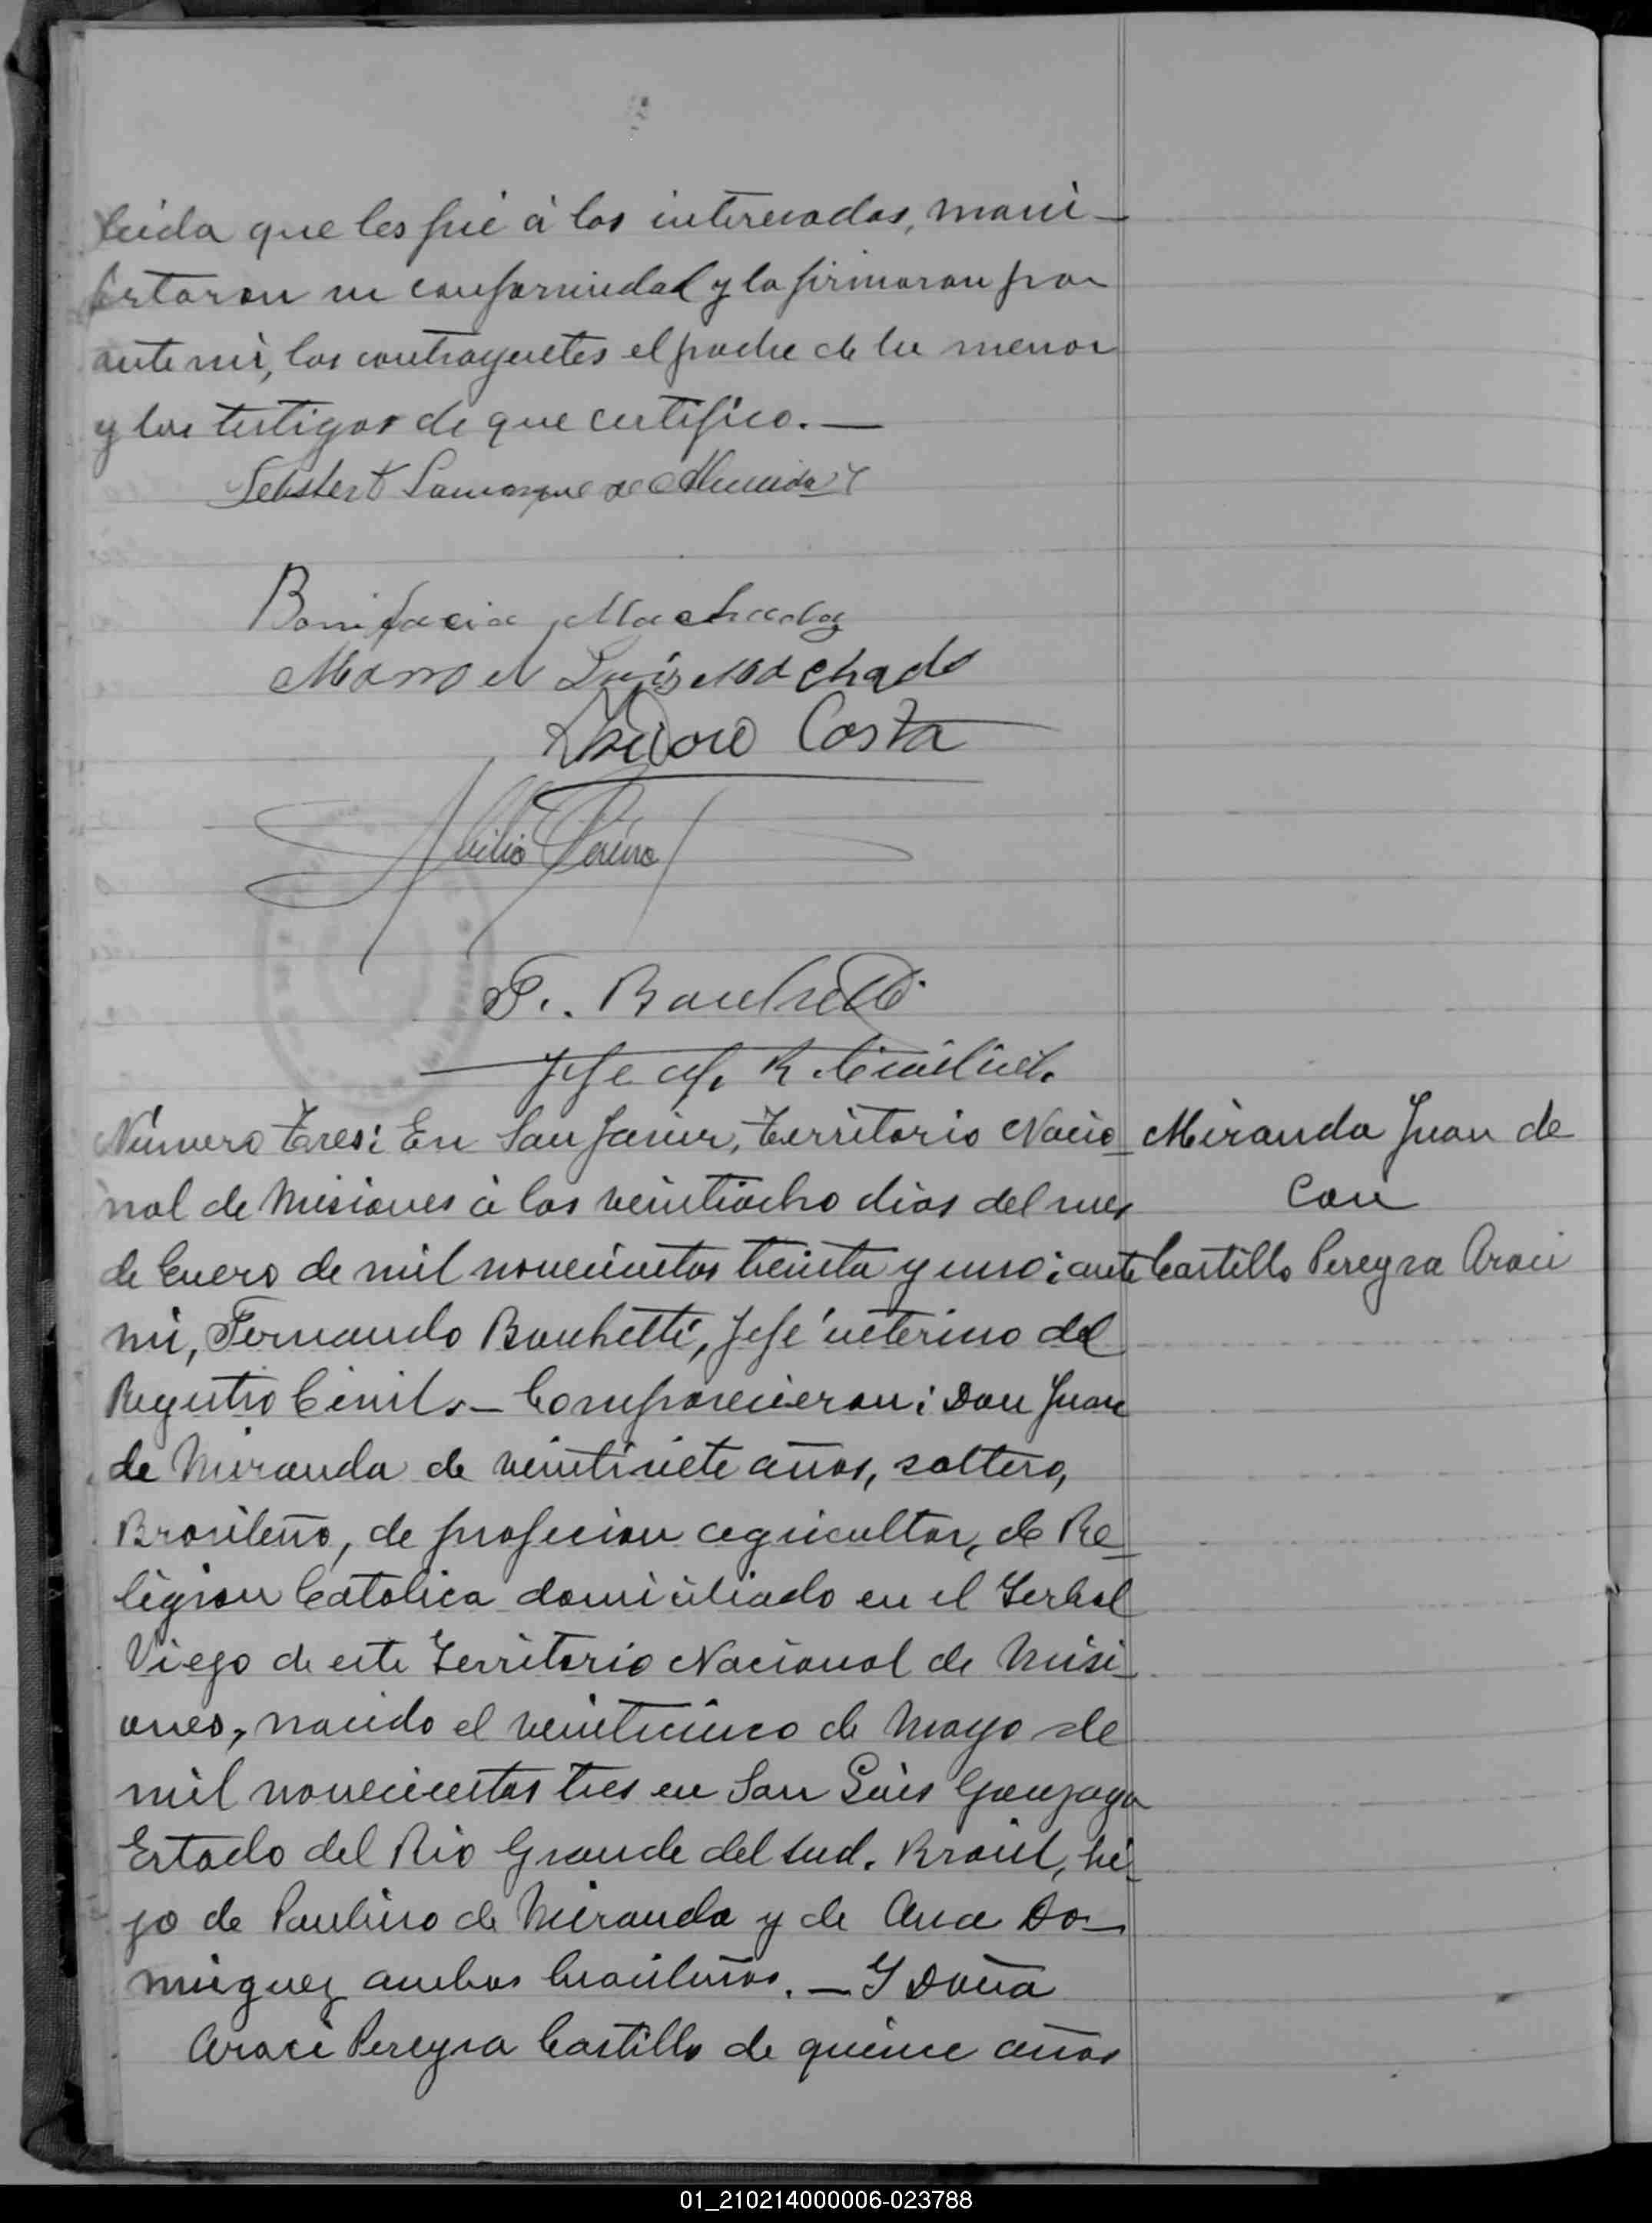 leida que les fué á los interesados, mani-
festaron su conformidad y la firmaron por
ante mi, los contrayentes el padre de la menor
y los testigos de que certifico.—
Lamarque de Almeida
Bonifacia Machado
Manoel Luis Machado
Isidoro Costa
Abilio
F. Banchetti
Jefe R. Civil
Número Tres: En San Javier, Territorio Nacio-
nal de Misiones á los veintiocho dias del mes
de Enero de mil novecientos treinta y uno: ante
mi, Fernando Banchetti, Jefe interino del
Registro Civil.- Comparecieron: Don Juan
de Miranda de veintisiete años, soltero,
Brasileño, de profecion agricultor, de Re-
ligion Catolica domiciliado en el Yerbal
Viejo de este Territorio Nacional de Misi-
ones, nacido el veinticinco de Mayo de
mil novecientos tres en San Luis Gonzaga
Estado del Rio Grande del Sud. Brasil, hi-
jo de Paulino de Miranda y de Ana Do-
minguez ambos brasileños.— Y Doña
Araci Pereyra Castillo de quince años
Miranda Juan de
Con
Castillo Pereyra Araci
01_210214000006-023788